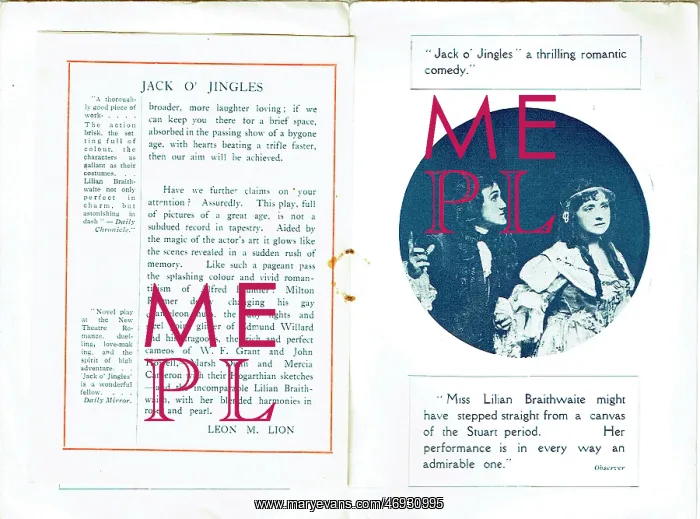 JACK O' JINGLES
"A thorough-
ly good piece of
work. . . . .
The action
brisk, the set-
ting full of
colour, the
characters as
gallant as their
costumes. . .
Lilian Braith-
waite not only
perfect in
charm, but
astonishing in
dash"—Daily
Chronicle."
"Novel play
at the New
Theatre Ro-
mance, duel-
ling, love-mak
ing, and the
spirit of high
adventure. . .
'Jack o' Jingles'
is a wonderful
fellow. . . .
Daily Mirror.
broader, more laughter loving; if we
can keep you there for a brief space,
absorbed in the passing show of a bygone
age, with hearts beating a trifle faster,
then our aim will be achieved.
Have we further claims on your
attention? Assuredly. This play, full
of pictures of a great age, is not a
subdued record in tapestry. Aided by
the magic of the actor's art it glows like
the scenes revealed in a sudden rush of
memory. Like such a pageant pass
the splashing colour and vivid roman-
of Milton
changing his gay
the and
of Edmund Willard
and his dragoons, the rich and perfect
cameos of W. F. Grant and John
Marsh and Mercia
Cameron with their Hogarthian sketches
—and the incomparable Lilian Braith-
waite, with her blended harmonies in
rose and pearl.
LEON M. LION
"Jack o' Jingles" a thrilling romantic
comedy."
"Miss Lilian Braithwaite might
have stepped straight from a canvas
of the Stuart period. Her
performance is in every way an
admirable one."
Observer
ME
PL
ME
PL
www.maryevans.com/46930995